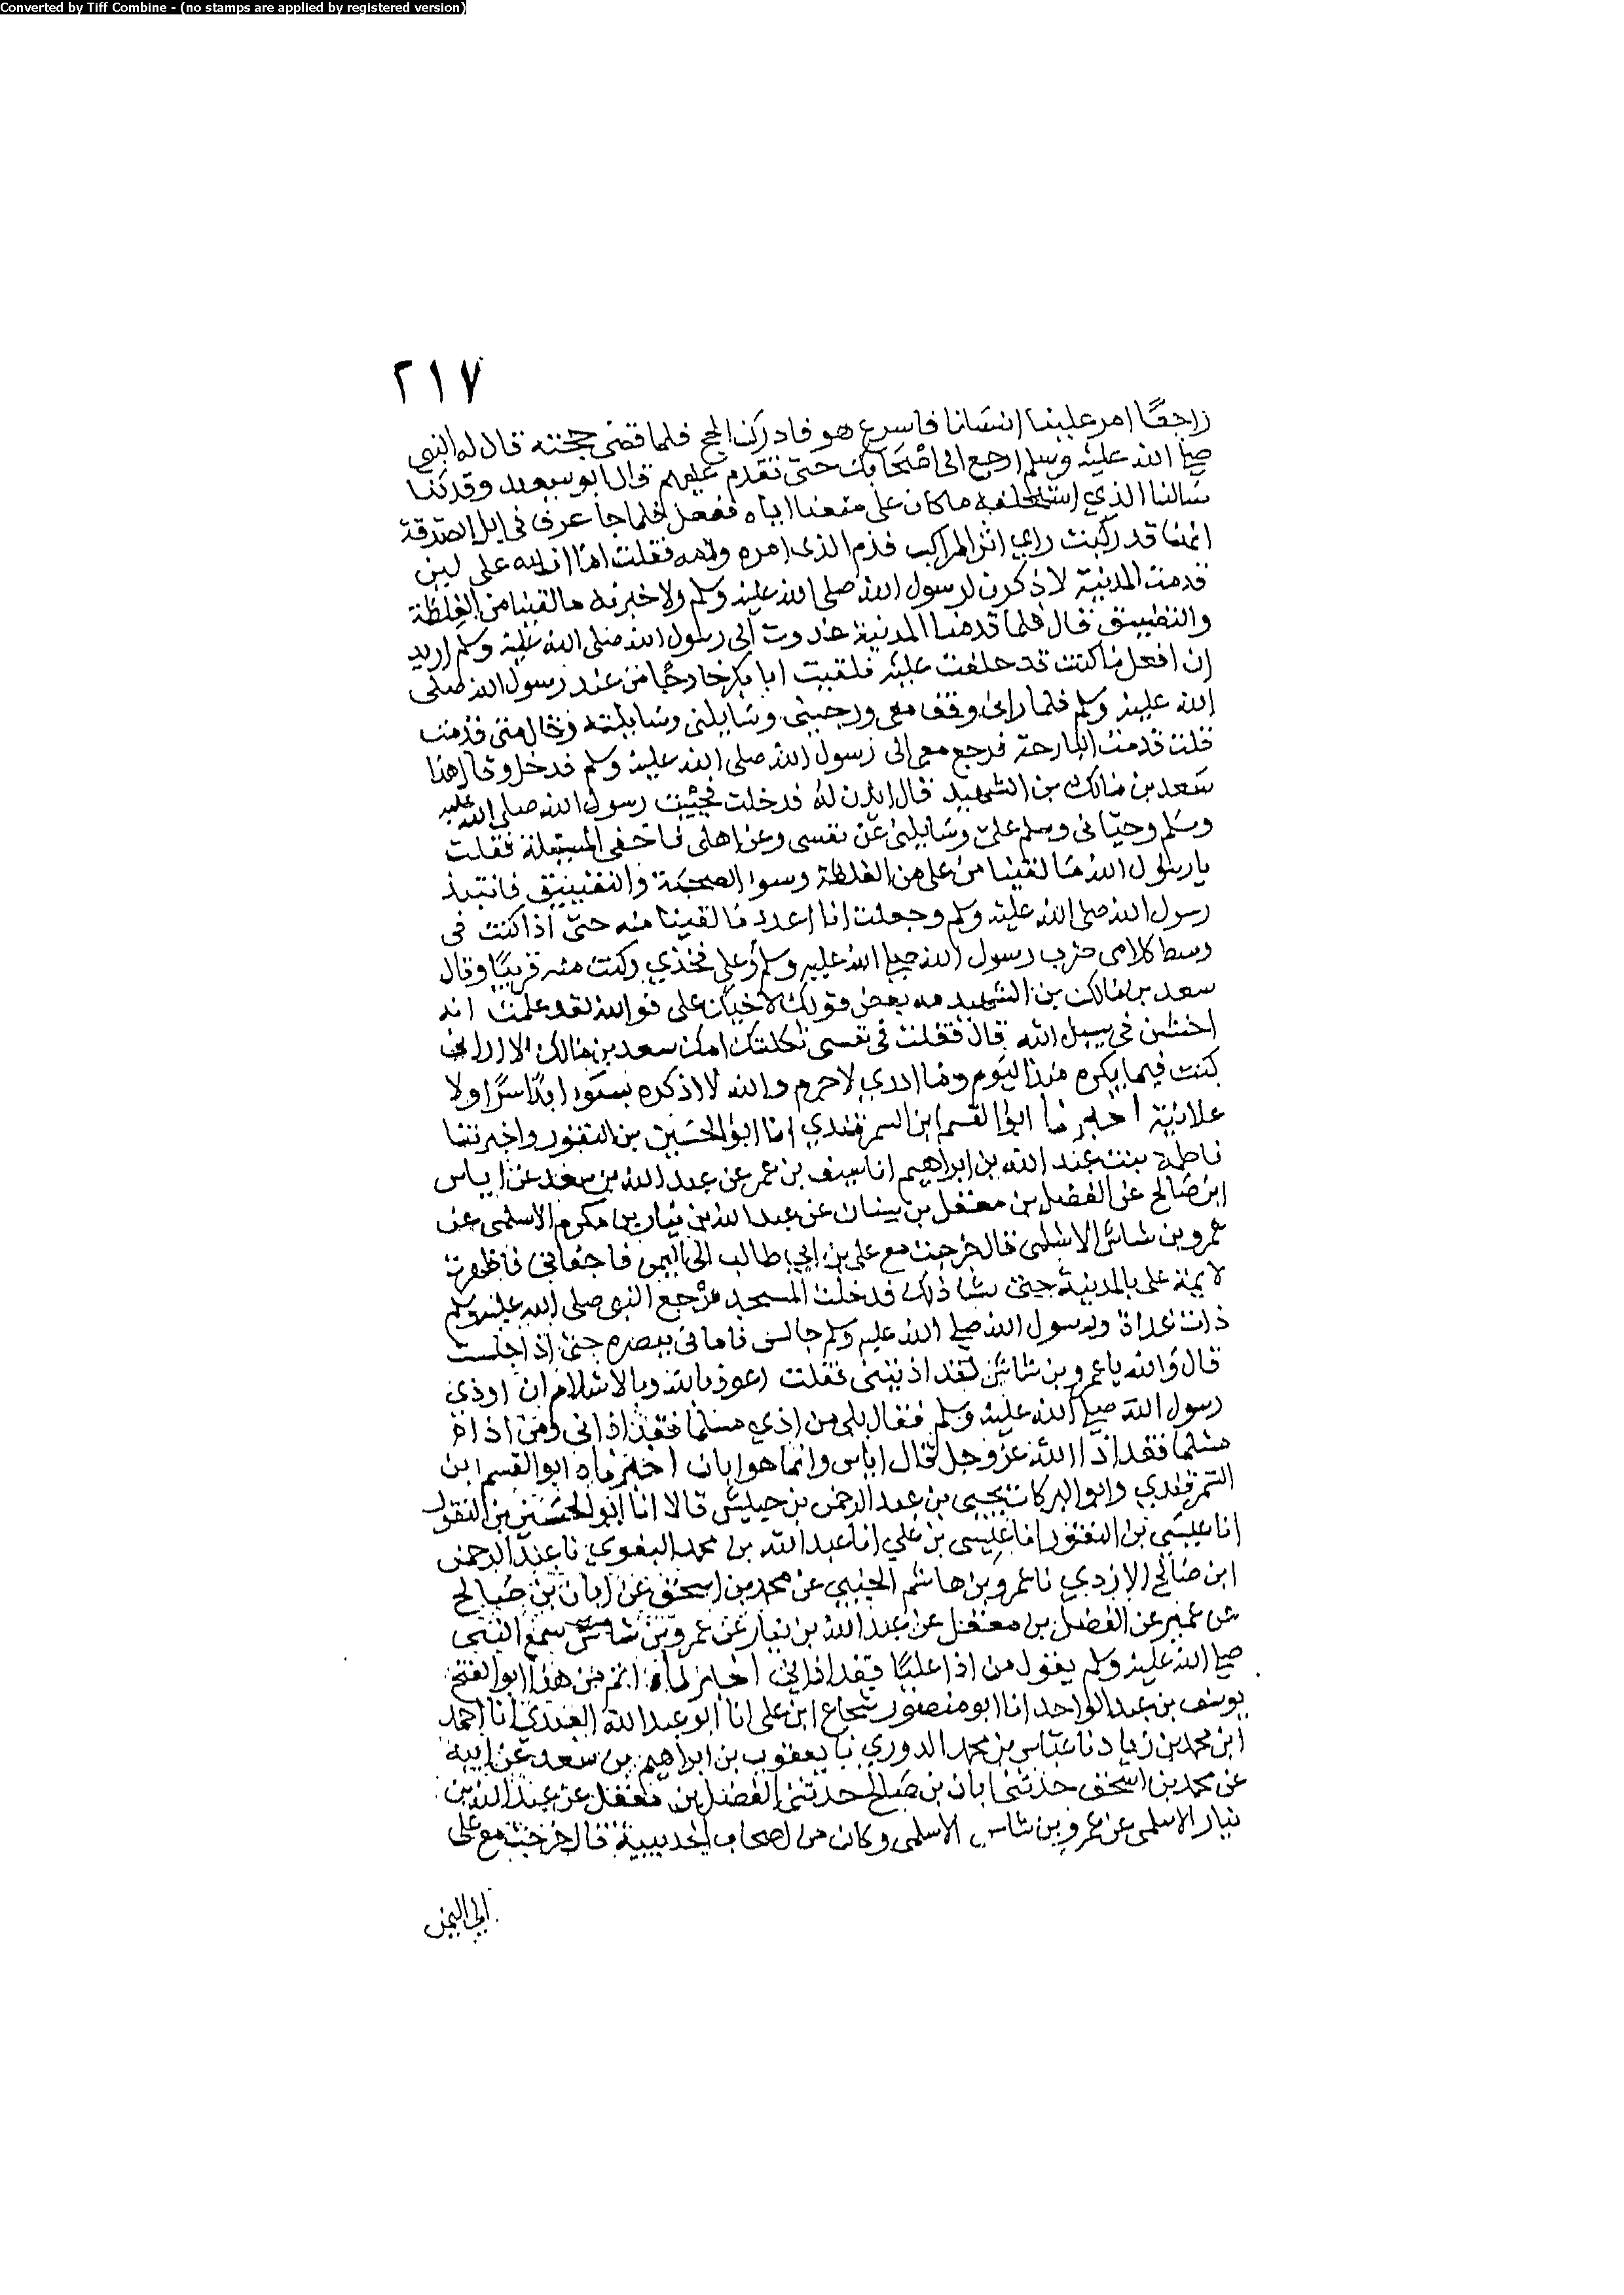 Converted by Tiff Combine - (no stamps are applied by registered version)
٢١٧
راجعا امر علينا انسانا فاسرع هو فادرك الحج فلما قضى حجته قال له النبي
صلى الله عليه وسلم ارجع الى اصحابك حتى تقدم عليهم قال ابو سعيد وقد كنا
سالنا الذي استخلفه ما كان علي منعنا اياه ففعل فلما جا عرف في ابل الصدقة
انها قد ركبت راي اثر المراكب فذم الذي امره ولامه فقلت اما ان لله علي لين
قدمت المدينة لاذكرن لرسول الله صلى الله عليه وسلم ولاخبرنه ما لقينا من الغلظة
والتضييق قال فلما قدمنا المدينة غدوت الى رسول الله صلى الله عليه وسلم اريد
ان افعل ما كنت قد حلفت عليه فلقيت ابا بكر خارجا من عند رسول الله صلى
الله عليه وسلم فلما راني وقف معي ورحب بي وسايلني وسايلته وقال متى قدمت
قلت قدمت البارحة فرجع معي الى رسول الله صلى الله عليه وسلم فدخل وقال هذا
سعد بن مالك بن الشهيد قال ايذن له فدخلت فحييت رسول الله صلى الله عليه
وسلم وحياني وسلم علي وسايلني عن نفسي وعن اهلي فاحفى المسئلة فقلت
يا رسول الله ما لقينا من علي من الغلظة وسوا الصحبة والتضييق فانتبذ
رسول الله صلى الله عليه وسلم وجعلت انا اعدد ما لقينا منه حتى اذا كنت في
وسط كلامي ضرب رسول الله صلى الله عليه وسلم على فخذي وكنت منه قريبا وقال
سعد بن مالك بن الشهيد مه بعض قولك لاخيك علي فوالله لقد علمت انه
اخشن في سبيل الله قال فقلت في نفسي ثكلتك امك سعد بن مالك الا اراني
كنت فيما يكره منذ اليوم وما ادري لا جرم والله لا اذكره بسوء ابدا سرا ولا
علانية اخبرنا ابو القسم ابن السمرقندي انا ابو الحسين بن النقور واخبرتنا
فاطمة بنت عبد الله بن ابراهيم انا سيف بن عمر عن عبد الله بن سعد عن اياس
ابن صالح عن الفضل بن معقل بن سنان عن عبد الله بن نيار بن مكرم الاسلمي عن
عمرو بن شاش الاسلمي قال خرجت مع علي بن ابي طالب الى اليمن فاجفاني فاظهرت
لايمة علي بالمدينة حتى فشا ذلك فدخلت المسجد مرجع النبي صلى الله عليه وسلم
ذات غداة ورسول الله صلى الله عليه وسلم جالس فاماني ببصره حتى اذا جلست
قال والله يا عمرو بن شاش لقد اذيتني فقلت اعوذ بالله وبالاسلام ان اوذي
رسول الله صلى الله عليه وسلم فقال بلى من اذي مسلما فقد اذاني ومن اذاا
مسلما فقد اذا الله عز وجل قال اياس وانما هو ابان اخبرناه ابو القسم ابن
السمرقندي وابو البركات يحيى بن عبد الرحمن بن حبيش قالا انا ابو الحسين بن النقور
انا عيسى بن النقور انا عيسى بن علي انا عبد الله بن محمد البغوي نا عبد الرحمن
ابن صالح الازدي نا عمرو بن هاشم الجنبي عن محمد بن اسحق عن ابان بن صالح
عن عمير عن الفضل بن معقل عن عبد الله بن نيار عن عمرو بن شاس سمع النبي
صلى الله عليه وسلم يقول من اذا عليا فقد اذاني اخبرناه اتم من هذا ابو الفتح
يوسف بن عبد الواحد انا ابو منصور شجاع ابن علي انا ابو عبد الله العبدي انا احمد
ابن محمد بن زياد نا عباس بن محمد الدوري نا يعقوب بن ابراهيم بن سعد عن ابيه
عن محمد بن اسحق حدثني ابان بن صالح حدثني الفضل بن معقل عن عبد الله بن
نيار الاسلمي عن عمرو بن شاس الاسلمي وكان من اصحاب الحديبية قال خرجت مع علي
الى اليمن